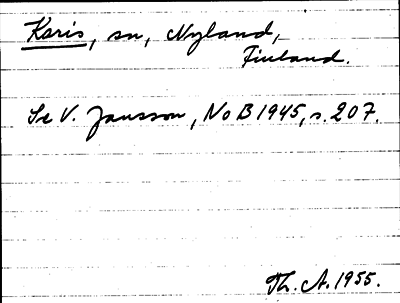 Karis, sn, Nyland,
Finland.
Se V. Jansson, NoB 1945, s. 207.
Th. A. 1955.